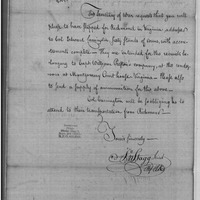 The Secretary of War requests that you will
please to have shipped for Richmond in Virginia addressed
to Col. Edward Carrington forty stands of arms, with accou-
trements complete They are intended for the recruits be-
longing to Capt. William Preston's company, at the rendez-
vous at Montgomery Court house Virginia — Please also
to send a supply of ammunition for the above.
Col. Carrington will be so obliging as to
attend to their transportation from Richmond
Yours sincerely
Jn Stagg Junr